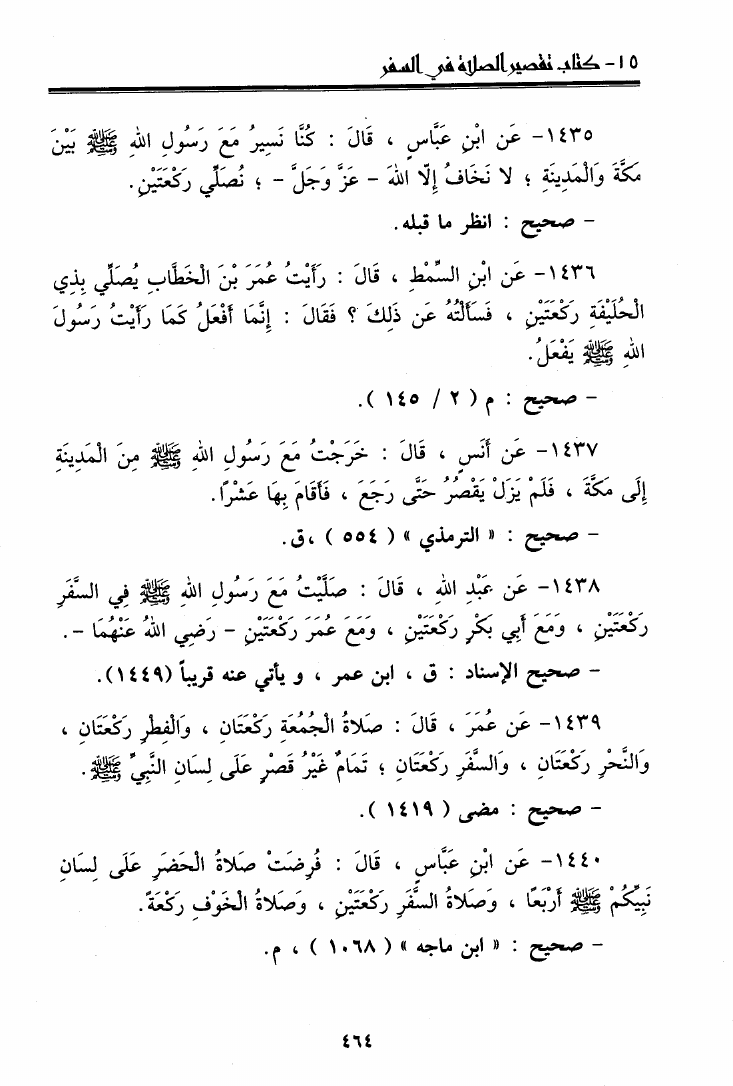 ١٥- كتاب تقصير الصلاة في السفر
١٤٣٥- عَنِ ابْنِ عَبَّاسٍ ، قَالَ : كُنَّا نَسِيرُ مَعَ رَسُولِ اللهِ ﷺ بَيْنَ
مَكَّةَ وَالْمَدِينَةِ ؛ لا نَخَافُ إِلّا اللهَ - عَزَّ وَجَلَّ - ؛ نُصَلِّي رَكْعَتَيْنِ.
- صحيح : انظر ما قبله.
١٤٣٦- عَنِ ابْنِ السِّمْطِ ، قَالَ : رَأَيْتُ عُمَرَ بْنَ الْخَطَّابِ يُصَلِّي بِذِي
الْحُلَيْفَةِ رَكْعَتَيْنِ ، فَسَأَلْتُهُ عَن ذَلِكَ ؟ فَقَالَ : إِنَّمَا أَفْعَلُ كَمَا رَأَيْتُ رَسُولَ
اللهِ ﷺ يَفْعَلُ.
- صحيح : م ( ٢ / ١٤٥ ).
١٤٣٧- عَن أَنَسٍ ، قَالَ : خَرَجْتُ مَعَ رَسُولِ اللهِ ﷺ مِنَ الْمَدِينَةِ
إِلَى مَكَّةَ ، فَلَمْ يَزَلْ يَقْصُرُ حَتَّى رَجَعَ ، فَأَقَامَ بِهَا عَشْرًا.
- صحيح : « الترمذي » ( ٥٥٤ ) ،ق.
١٤٣٨- عَن عَبْدِ اللهِ ، قَالَ : صَلَّيْتُ مَعَ رَسُولِ اللهِ ﷺ فِي السَّفَرِ
رَكْعَتَيْنِ ، وَمَعَ أَبِي بَكْرٍ رَكْعَتَيْنِ ، وَمَعَ عُمَرَ رَكْعَتَيْنِ - رَضِي اللهُ عَنْهُمَا -.
- صحيح الإسناد : ق ، ابن عمر ، و يأتي عنه قريباً (١٤٤٩).
١٤٣٩- عَن عُمَرَ ، قَالَ : صَلاةُ الْجُمُعَةِ رَكْعَتَانِ ، وَالْفِطْرِ رَكْعَتَانِ ،
وَالنَّحْرِ رَكْعَتَانِ ، وَالسَّفَرِ رَكْعَتَانِ ؛ تَمَامٌ غَيْرُ قَصْرٍ عَلَى لِسَانِ النَّبِيِّ ﷺ.
- صحيح : مضى ( ١٤١٩ ).
١٤٤٠- عَنِ ابْنِ عَبَّاسٍ ، قَالَ : فُرِضَتْ صَلاةُ الْحَضَرِ عَلَى لِسَانِ
نَبِيِّكُمْ ﷺ أَرْبَعًا ، وَصَلاةُ السَّفَرِ رَكْعَتَيْنِ ، وَصَلاةُ الْخَوْفِ رَكْعَةً.
- صحيح : « ابن ماجه » ( ١٠٦٨ ) ، م.
٤٦٤